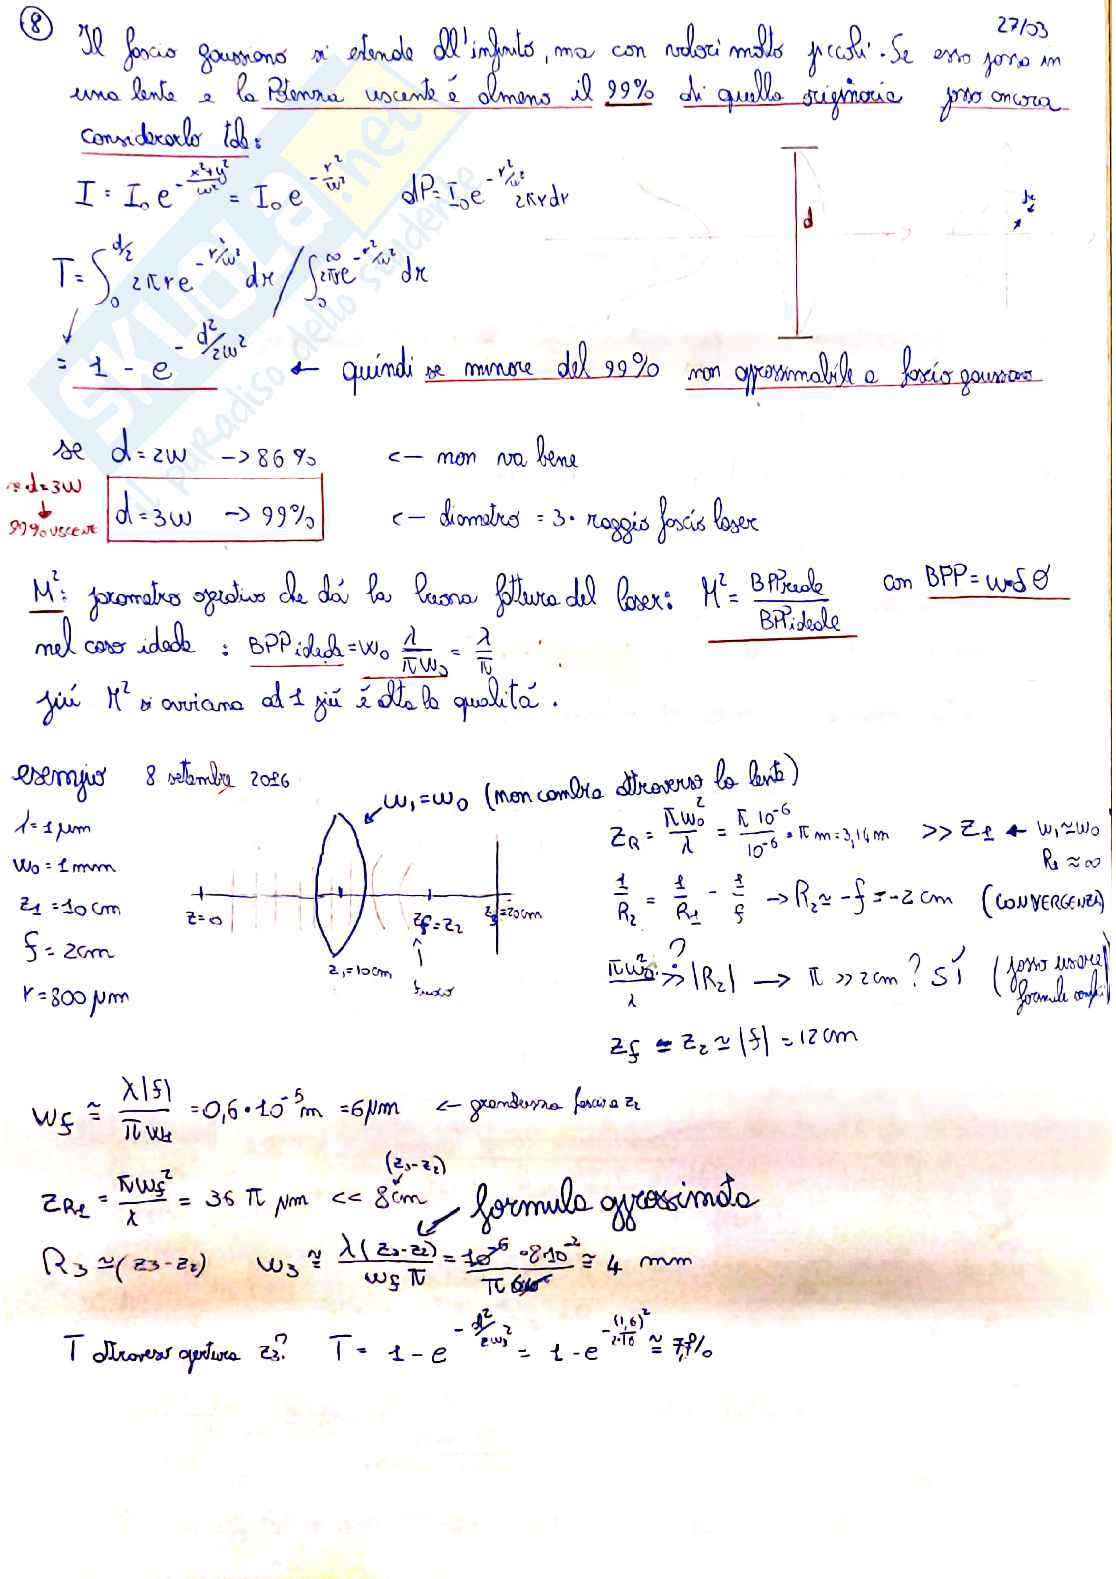 8
27/03
Il fascio gaussiano si estende all'infinito, ma con valori molto piccoli. Se esso passa in
una lente e la Potenza uscente é almeno il 99% di quella originaria posso ancora
considerarlo tale:
I = I₀ e^{-(x²+y²)/w²} = I₀ e^{-r²/w²}   dP = I₀ e^{-r²/w²} 2πrdr
d
T = ∫₀^{d/2} 2πr e^{-r²/w²} dr / ∫₀^∞ 2πr e^{-r²/w²} dr
= 1 - e^{-d²/2w²} ← quindi se minore del 99% non approssimabile a fascio gaussiano
se d = 2w -> 86% <- non va bene
d=3w
99% uscente
d = 3w -> 99% <- diametro = 3 · raggio fascio laser
M²: parametro operativo che dá la buona fattura del laser: M² = BPPreale / BPPideale con BPP = w·δθ
nel caso ideale : BPPideale = w₀ λ/πw₀ = λ/π
piú M² si avviana ad 1 piú é alta la qualitá.
esempio 8 settembre 2016
w₁=w₀ (non cambia attraverso la lente)
λ=1μm
w₀=1mm
z₁=10cm
f=2cm
r=800μm
z=0
z₁=10cm
zf=z₂
fuoco
z₃=20cm
z_R = πw₀²/λ = π 10⁻⁶/10⁻⁶ = π m = 3,14m >> z₁ ← w₁≃w₀
R₁≈∞
1/R₂ = 1/R₁ - 1/f -> R₂ ≃ -f = -2cm (CONVERGENZA)
πw₀²/λ >>? |R₂| → π >> 2cm? SÍ (posso usare
zf ≃ z₂ ≃ |f| = 12cm
wf ≃ λ|f|/πw₁ = 0,6·10⁻⁵m = 6μm ← grandezza fascio a z₂
z_R₁ = πwf²/λ = 36 π μm << 8cm (z₃-z₂)
formula approssimata
R₃ ≃ (z₃-z₂)   w₃ ≃ λ(z₃-z₂)/wf π = 10⁻⁶·8·10⁻²/π ≅ 4 mm
T attraverso apertura z₃? T = 1 - e^{-d²/2w₃²} = 1 - e^{-(1,6)²/2·16} ≅ 7,7%